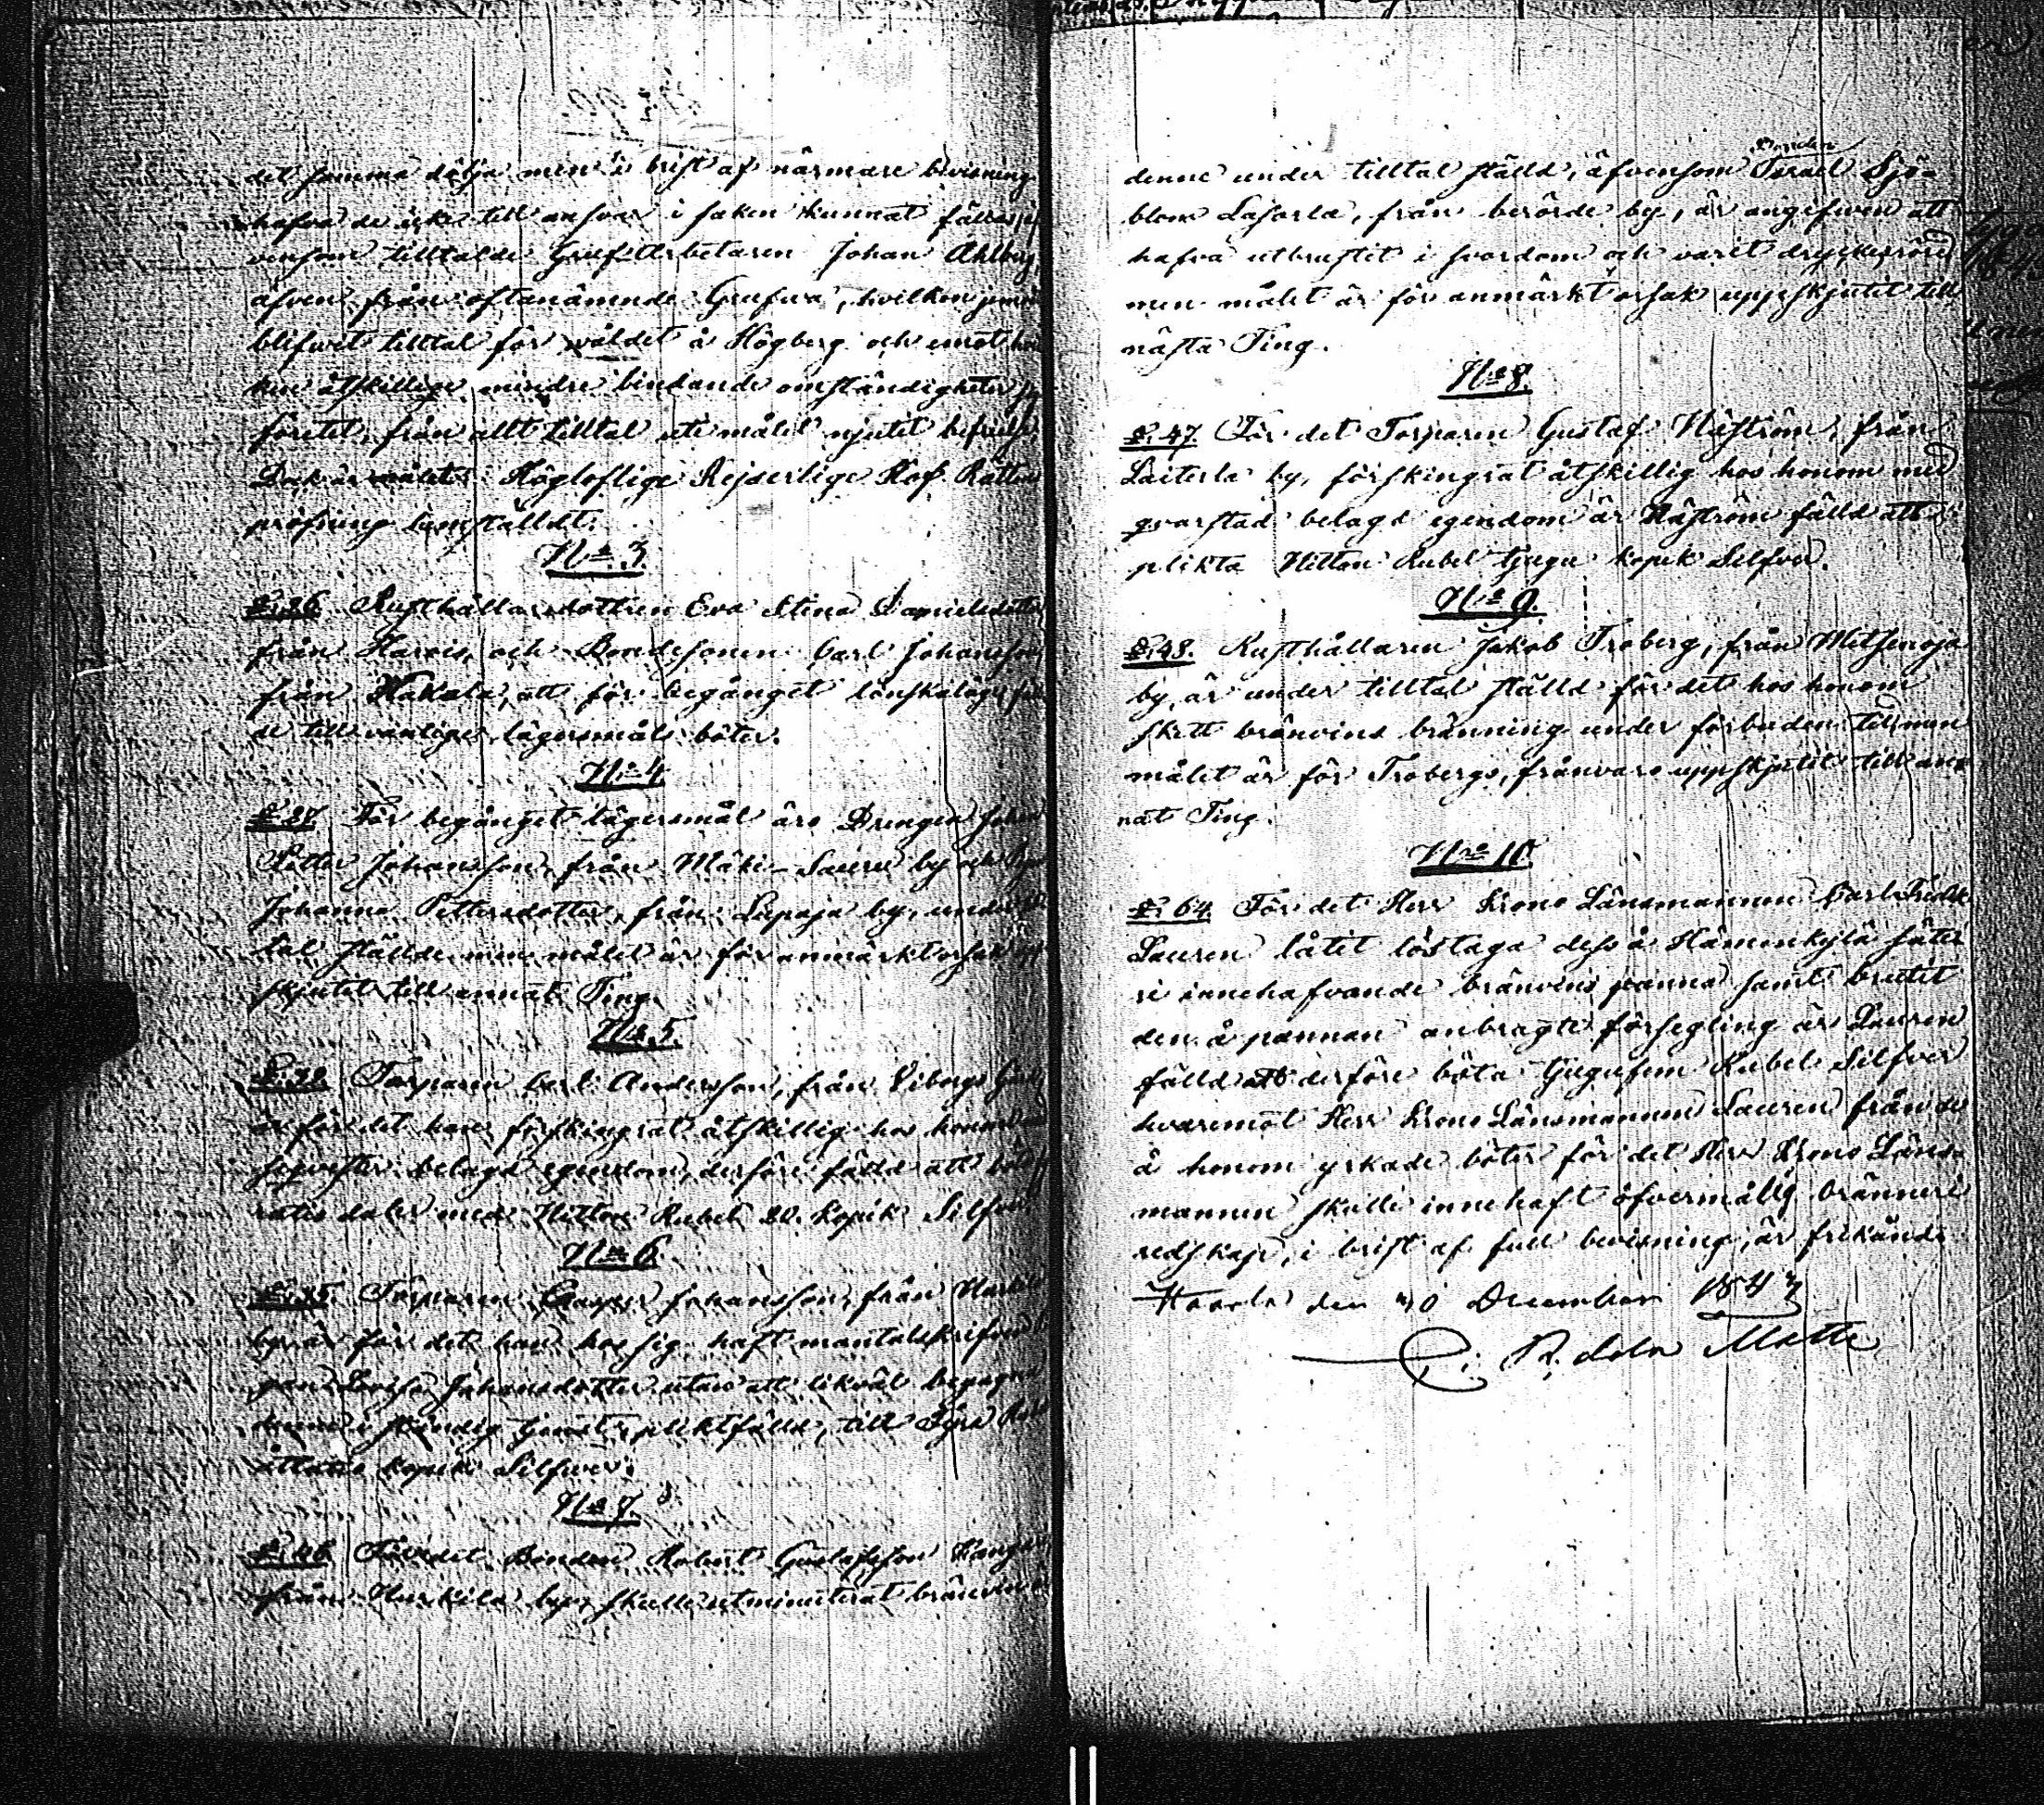 det samma dölja men i brist af närmare bevisning
hafva de icke till ansvar i saken kunnat fällas,
vensom tilltalde Gruf Arbetaren Johan Ahlberg,
äfven från oftanämnde Grufva, hvilken
blifwit tilltal för våldet å Högberg och emot
ken åtskillige mindre bindande omständigheter
företet, från allt tilltal uti målet njutit befrielse,
Dock är målet Högloflige Kejserlige Hof Rättens
pröfning hemstäldt.
No 3.
§. 26. Rusthållaredottren Eva Stina Danielsdotter
från Harvis, och Bondesonen Carl Johansson,
från Hakala, att för begånget lönskaläge,
de till vanliga lägersmåls böter.
No 4
§ 27. För begånget lägersmål äro Drengen Johan
Petter Johansson, från Mäki-Sauru by och
Johanna Pettersdotter, från Lupaja by, under
tal stälde men målet är för anmärkt orsak upp
skjutit till annat Ting.
No 5.
Torparen Carl Andersson, från Viborgs
är för det han förskingrat åtskillig hos honom
sequester belagd egendom, derföre fälld att böta
daler med Nitton Rubel 20. kopek Silfver.
No 6.
§. 45. Torparen Casper Johansson, från
by är för det han hos sig haft mantalskrifven
gan Lovisa Johansdotter utan att likväl begagna
denne i ständig tjenst, pliktfälld, till Fyra
åttatio kopek Silfver.
No 7.
§. 46. För det Bonden Robert Gustafsson
från Hurkila by, skulle utminuterat bränvin
denne under tilltal ställd, äfvensom Bonden Israel Sjö-
blom Lasarla, från berörde by, är angifwen att
hafva utbrustit i svordom och varit dryckesrörd
men målet är för anmärkt orsak uppskjutit till
nästa Ting.
No 8.
§. 47. För det Torparen Gustaf Näström, från
Laiterla by, förskingrat åtskillig hos honom med
qvarstad belagd egendom är Näström fälld att
plikta Nitton Rubel tjugu kopek Silfver.
No 9.
§. 48. Rusthållaren Jakob Troberg, från Metsenoja
by, är under tilltal ställd för det hos honom
skett bränvins bränning under förbuden tid, men
målet är för Trobergs, frånvaro uppskjutit till an-
nat Ting.
No 10.
§. 64. För det Herr Krono Länsmannen Carl Fredrik
Lauren låtit löstaga dess å Hämenkylä säte
ri innehafvande bränvins panna samt brutit
den å pannan anbragte försegling är Lauren
fälld att derföre böta Tjugufem Rubel Silfver
hvaremot Herr Krono Länsmannen Lauren från de
å honom yrkade böter för det Herr Krono Läns-
mannen skulle innehaft öfvermålig bränneri
redskap, i brist af full bevisning, är frikänd.
den 30 December 1843